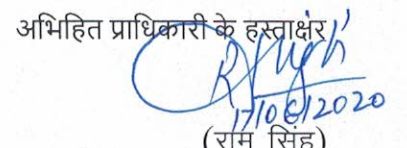 अभिहित प्राधिकारी के हस्ताक्षर
17/06/2020
(राम सिंह)